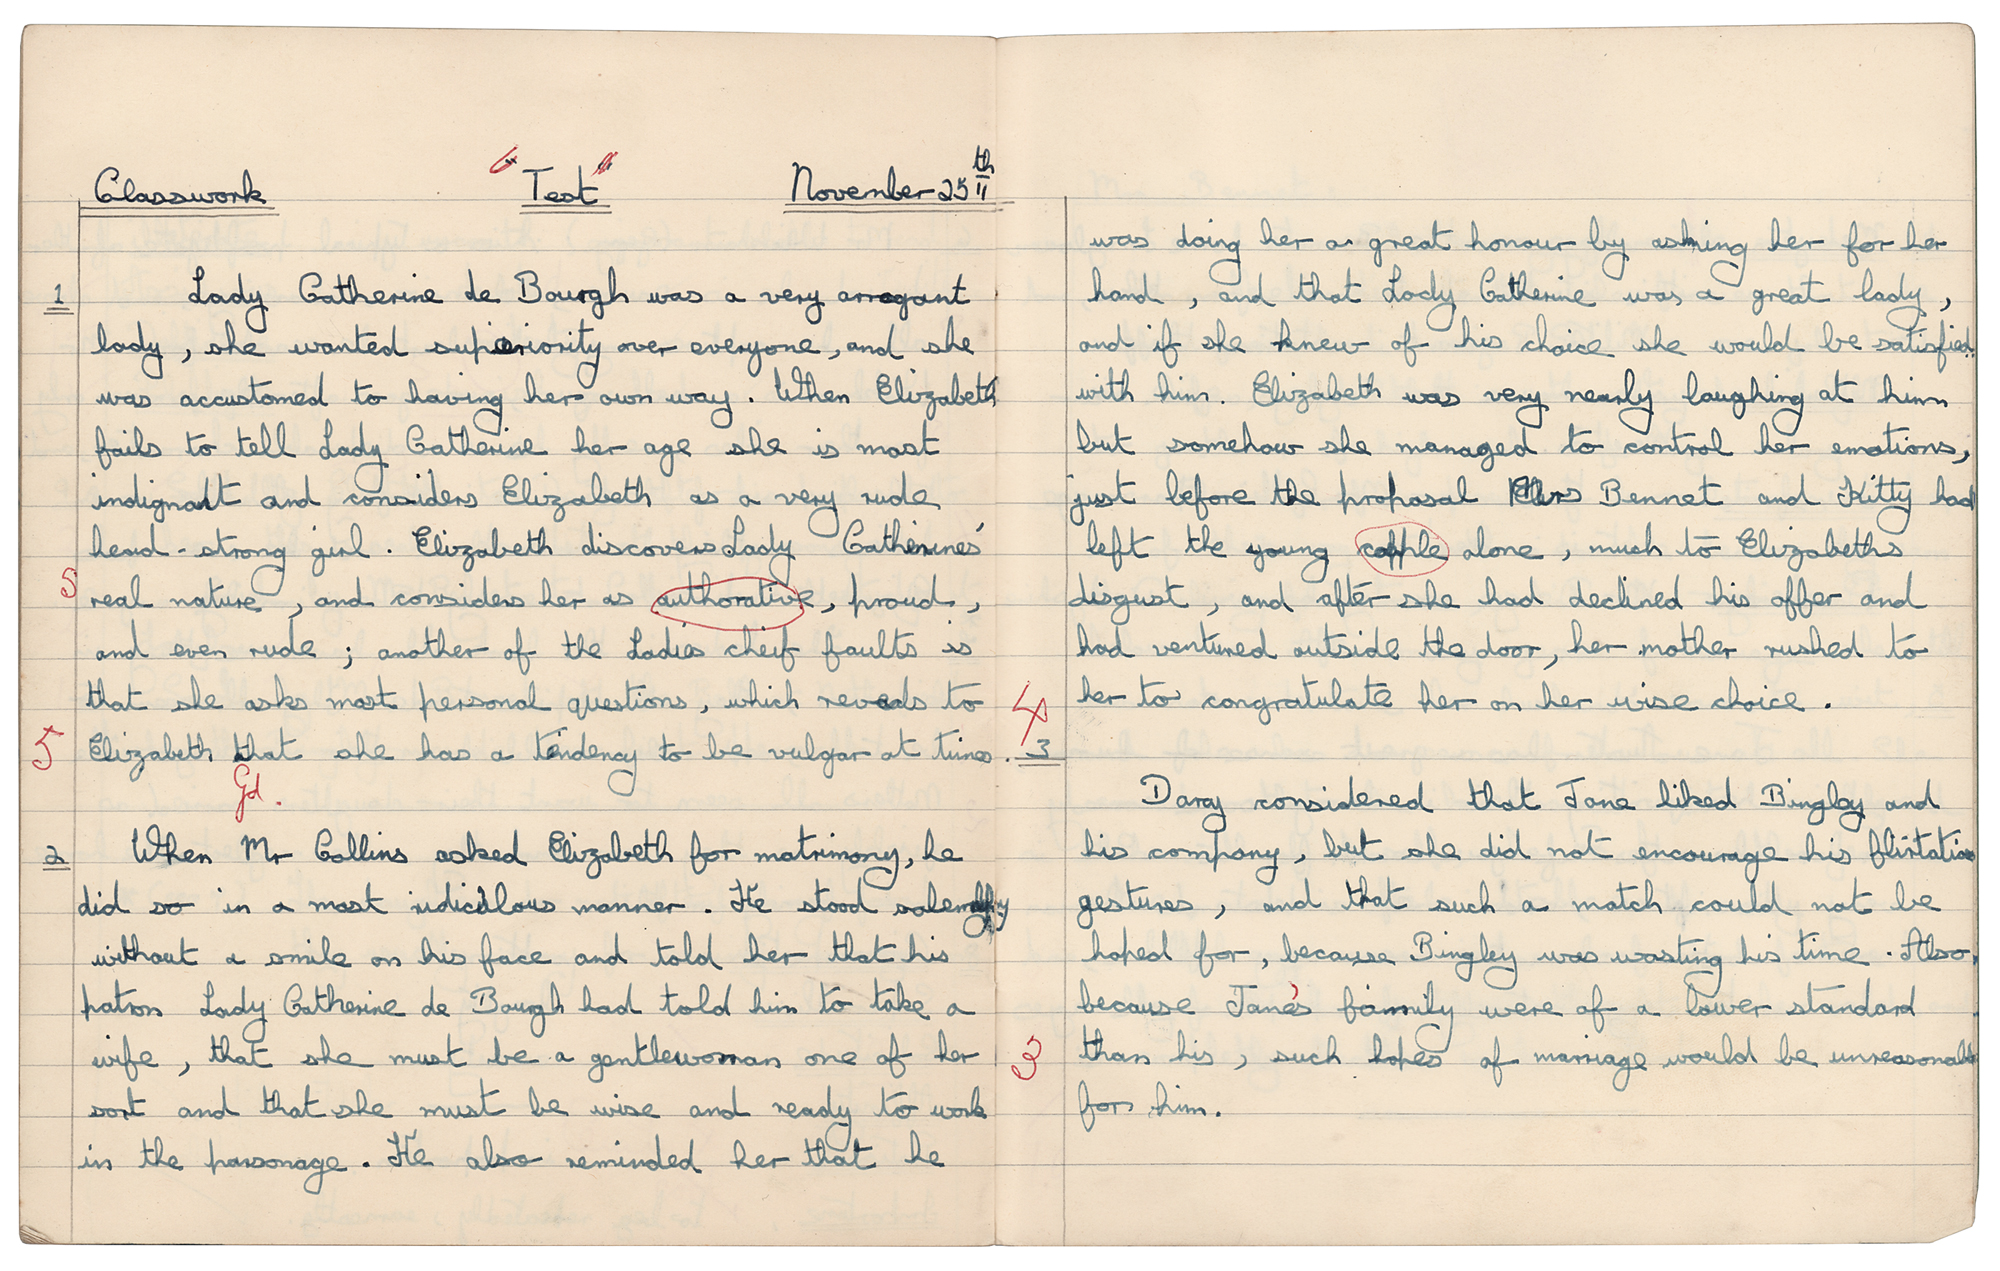 Classwork "Test" November 25th
1 Lady Catherine de Bourgh was a very arrogant
lady, she wanted superiority over everyone, and she
was accustomed to having her own way. When Elizabeth
fails to tell Lady Catherine her age she is most
indignant and considers Elizabeth as a very rude
head-strong girl. Elizabeth discovers Lady Catherines'
5 real nature, and considers her as authorative, proud,
and even rude; another of the Ladies cheif faults is
that she asks most personal questions, which reveals to
5 Elizabeth that she has a tendency to be vulgar at times.
Gd.
2 When Mr Collins asked Elizabeth for matrimony, he
did so in a most ridiculous manner. He stood solemnly
without a smile on his face and told her that his
patron Lady Catherine de Bourgh had told him to take a
wife, that she must be a gentlewoman one of her
sort and that she must be wise and ready to work
in the parsonage. He also reminded her that he
was doing her a great honour by asking her for her
hand, and that Lady Catherine was a great lady,
and if she knew of his choice she would be satisfied
with him. Elizabeth was very nearly laughing at him
but somehow she managed to control her emotions,
just before the proposal Mrs Bennet and Kitty had
left the young copple alone, much to Elizabeths
disgust, and after she had declined his offer and
had ventured outside the door, her mother rushed to
4 her to congratulate her on her wise choice.
3
Darcy considered that Jane liked Bingley and
his company, but she did not encourage his flirtatios
gestures, and that such a match could not be
hoped for, because Bingley was wasting his time. Also,
because Jane's family were of a lower standard
3 than his, such hopes of marriage would be unreasonable
for him.